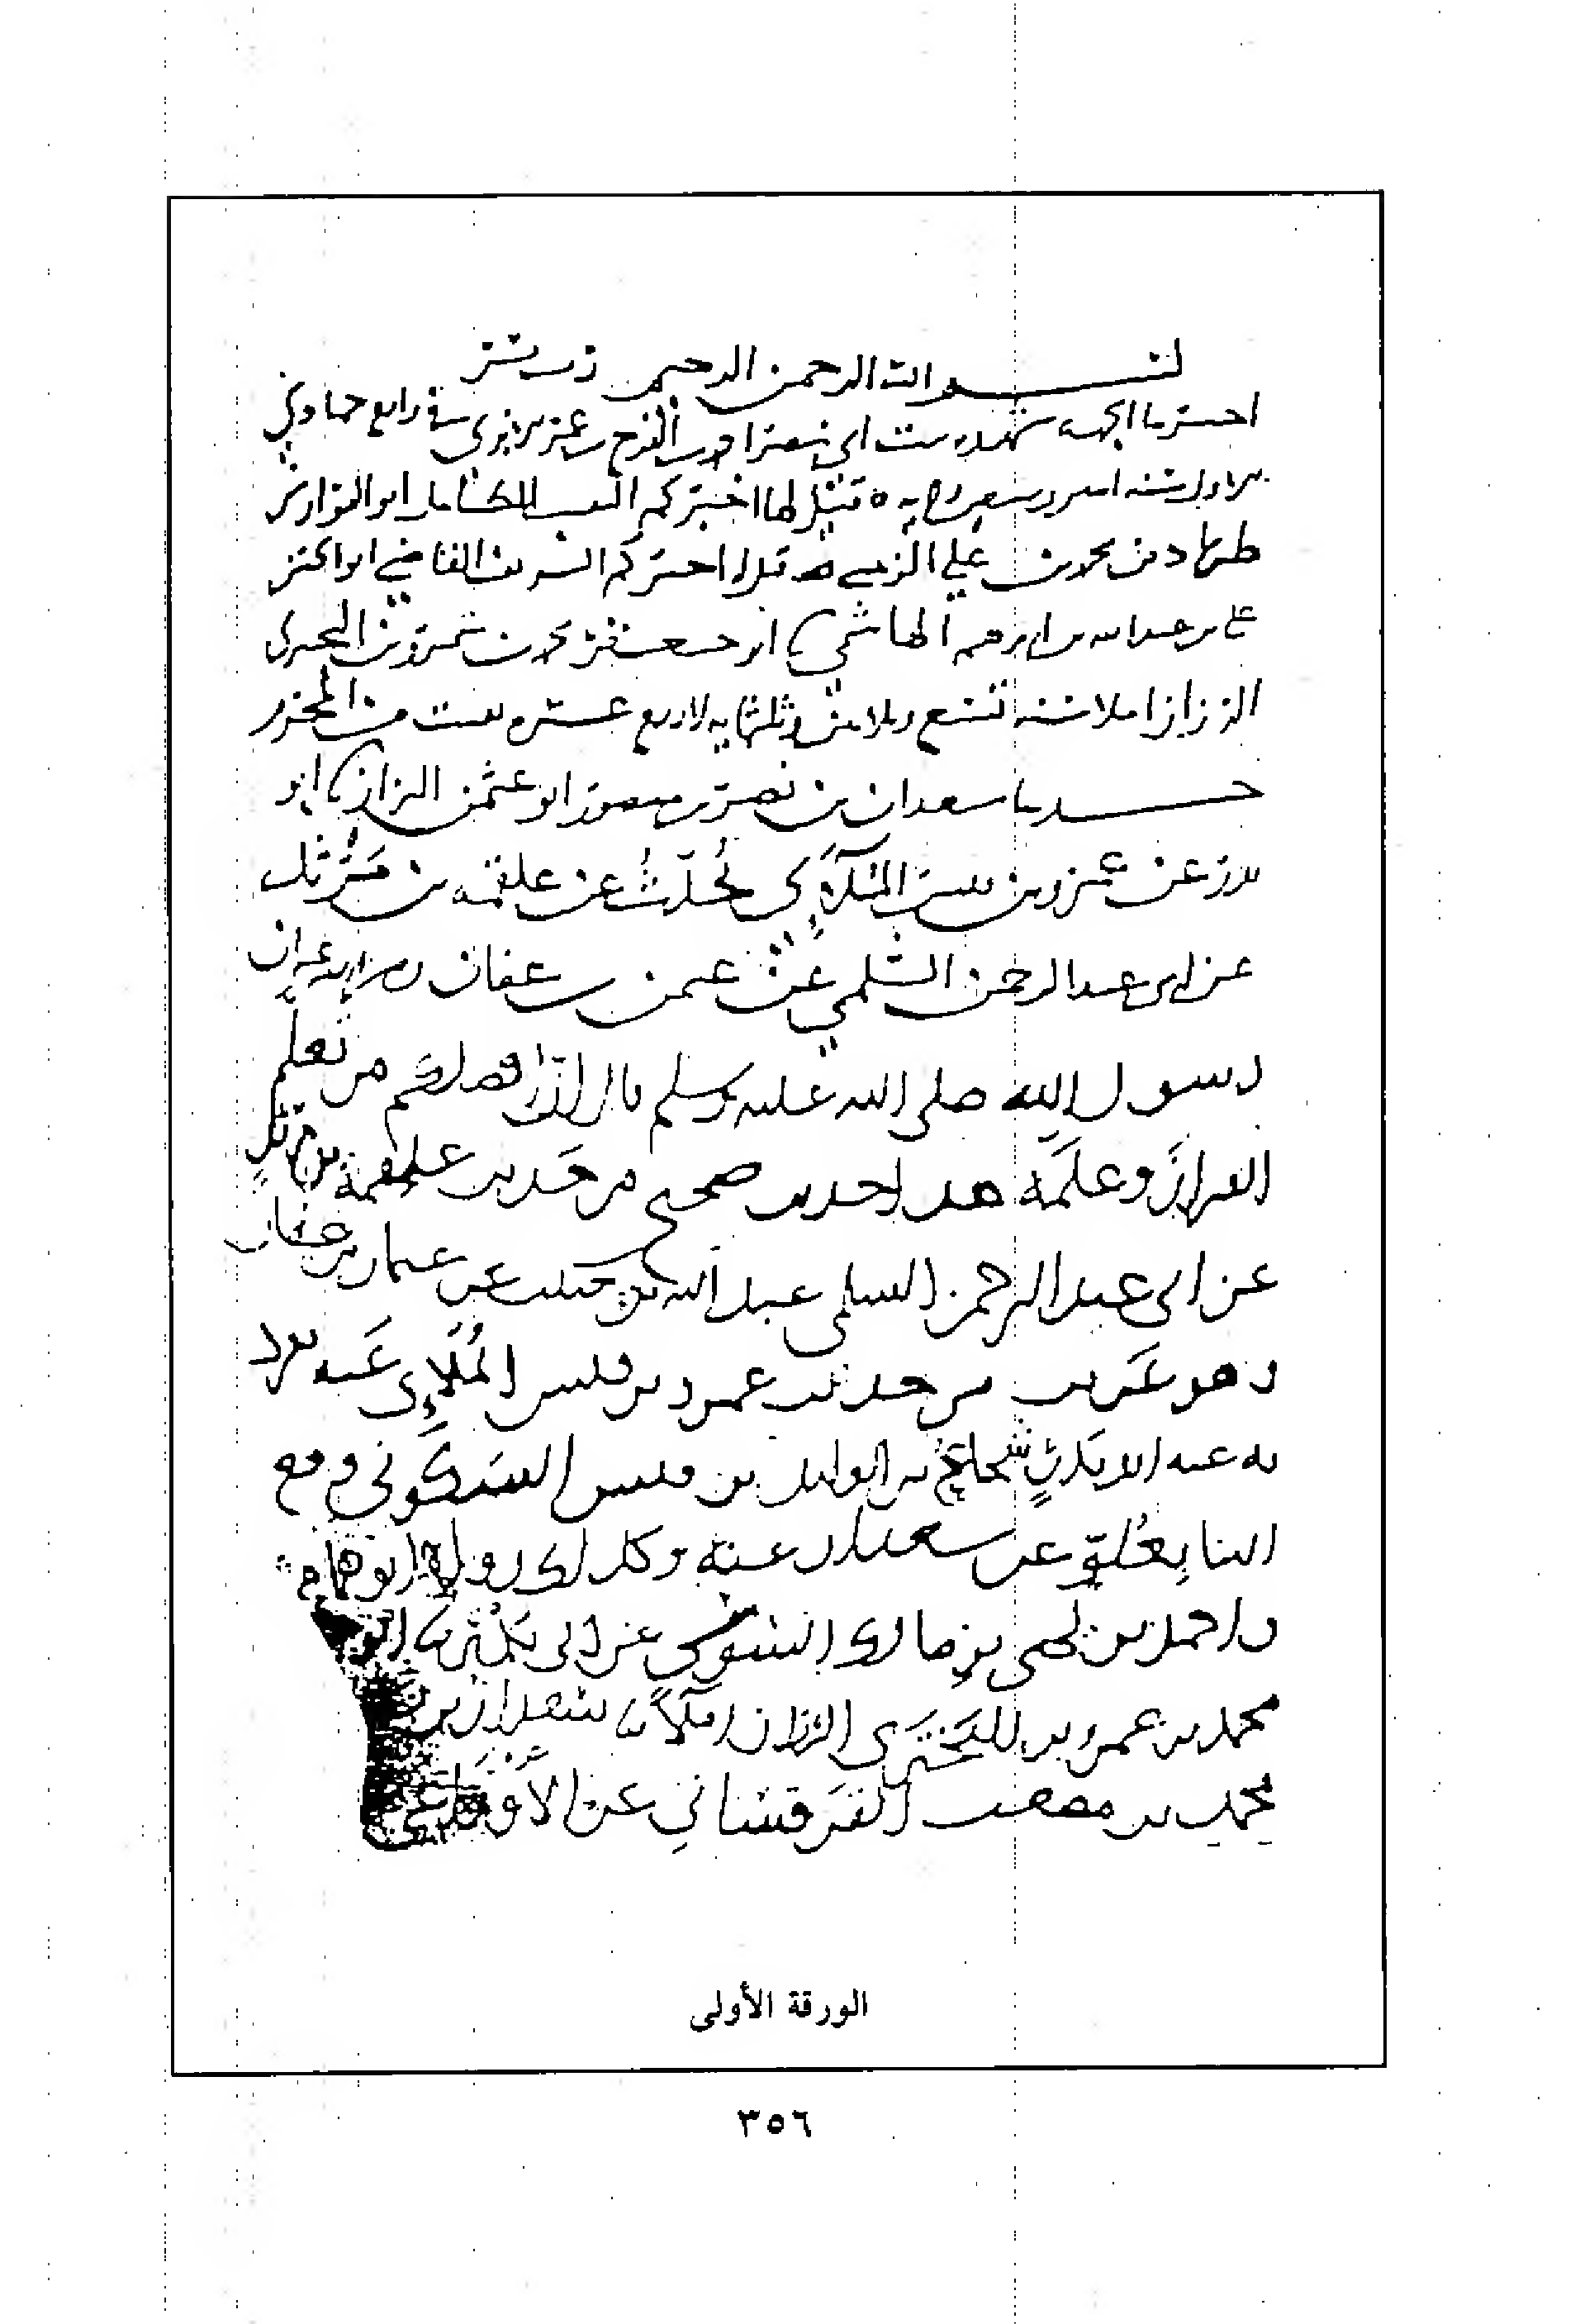 بسم الله الرحمن الرحيم رب يسر
اخبرتنا الجهة شهده بنت ابى نصر احمد بن الفرج بن عمر الابرى فى رابع جمادى
الاولى سنه وسبعين قيل لها اخبركم النقيب الكامل ابو الفوارس
طراد بن محمد بن علي الزينبي قيل له اخبركم الشريف القاضي ابو الحسن
علي بن عبد الله بن ابراهيم الهاشمي ابو جعفر محمد بن عمرو بن البحترى
الرزاز املا سنه تسع وثلاثين وثلثمايه لاربع عشره بقيت من المحرم
حدثنا سعدان بن نصر بن منصور ابو عثمن البزاز نا ابو
بدر عن عمرو بن قيس الملآءِي يُحدّثُ عن علقمه بن مَرْثَد
عن ابى عبد الرحمن السلمي عن عثمن بن عفان ان
رسول الله صلى الله عليه وسلم قال ان افضلكم من تعلم
القران وعلمه هذا حديث صحيح من حديث علقمة بن مرثد
عن ابى عبد الرحمن السلمى عبد الله بن حبيب عن عثمان بن عفان
وهو غريب من حديث عمرو بن قيس المُلَاءِى عنه تفرد
به عنه ابو بدرٍ شجاع بن الوليد بن قيس السكونى وقع
الينا بعُلوّ عن سعدان عنه وكذلك رواه ابو همام
واحمد بن يحيى بن مالك السوسي عن ابى بدر نا ابو
محمد بن عمرو بن البَخْتَرى الرزاز املاً نا سعدان بن
محمد بن مصعب القرقساني عن الأوزاعي
الورقة الأولى
٣٥٦